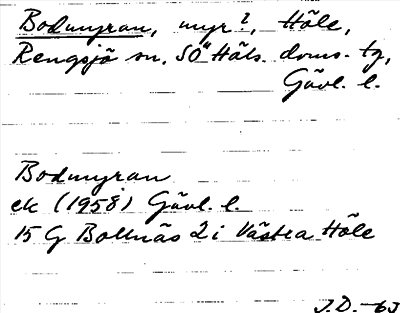 Bodmyran, myr?, Höle,
Rengsjö sn, SÖ Häls. doms. tg,
Gävl. l.
Bodmyran
ek (1958) Gävl. l.
15 G Bollnäs 2 i Västra Höle
J.D. -63